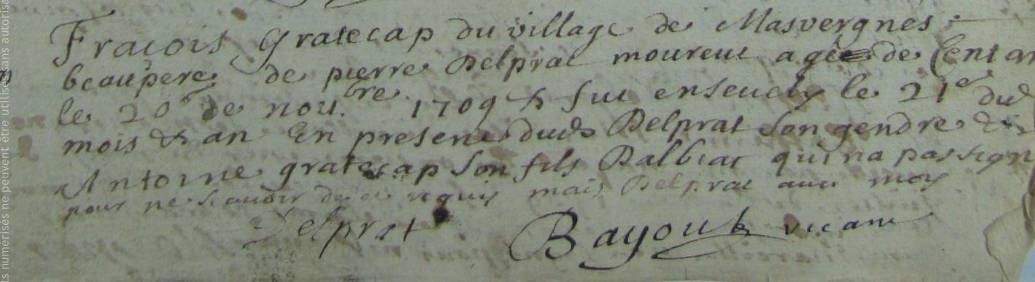 Fraçois gratecap du village de Masvergnes
beaupere de pierre Delprat mourut agé de Cent an
le 20e de nou.bre 1709 & fut enseuely le 21e dud
mois & an En presence dud Delprat Son gendre &
Antoine gratecap Son fils Dalbiac qui na pas signé
pour ne Scauoir de ce requis mais Delprat auec moy
Delprat Bayout vicaire
ts numérisés ne peuvent être utilisés sans autorisa